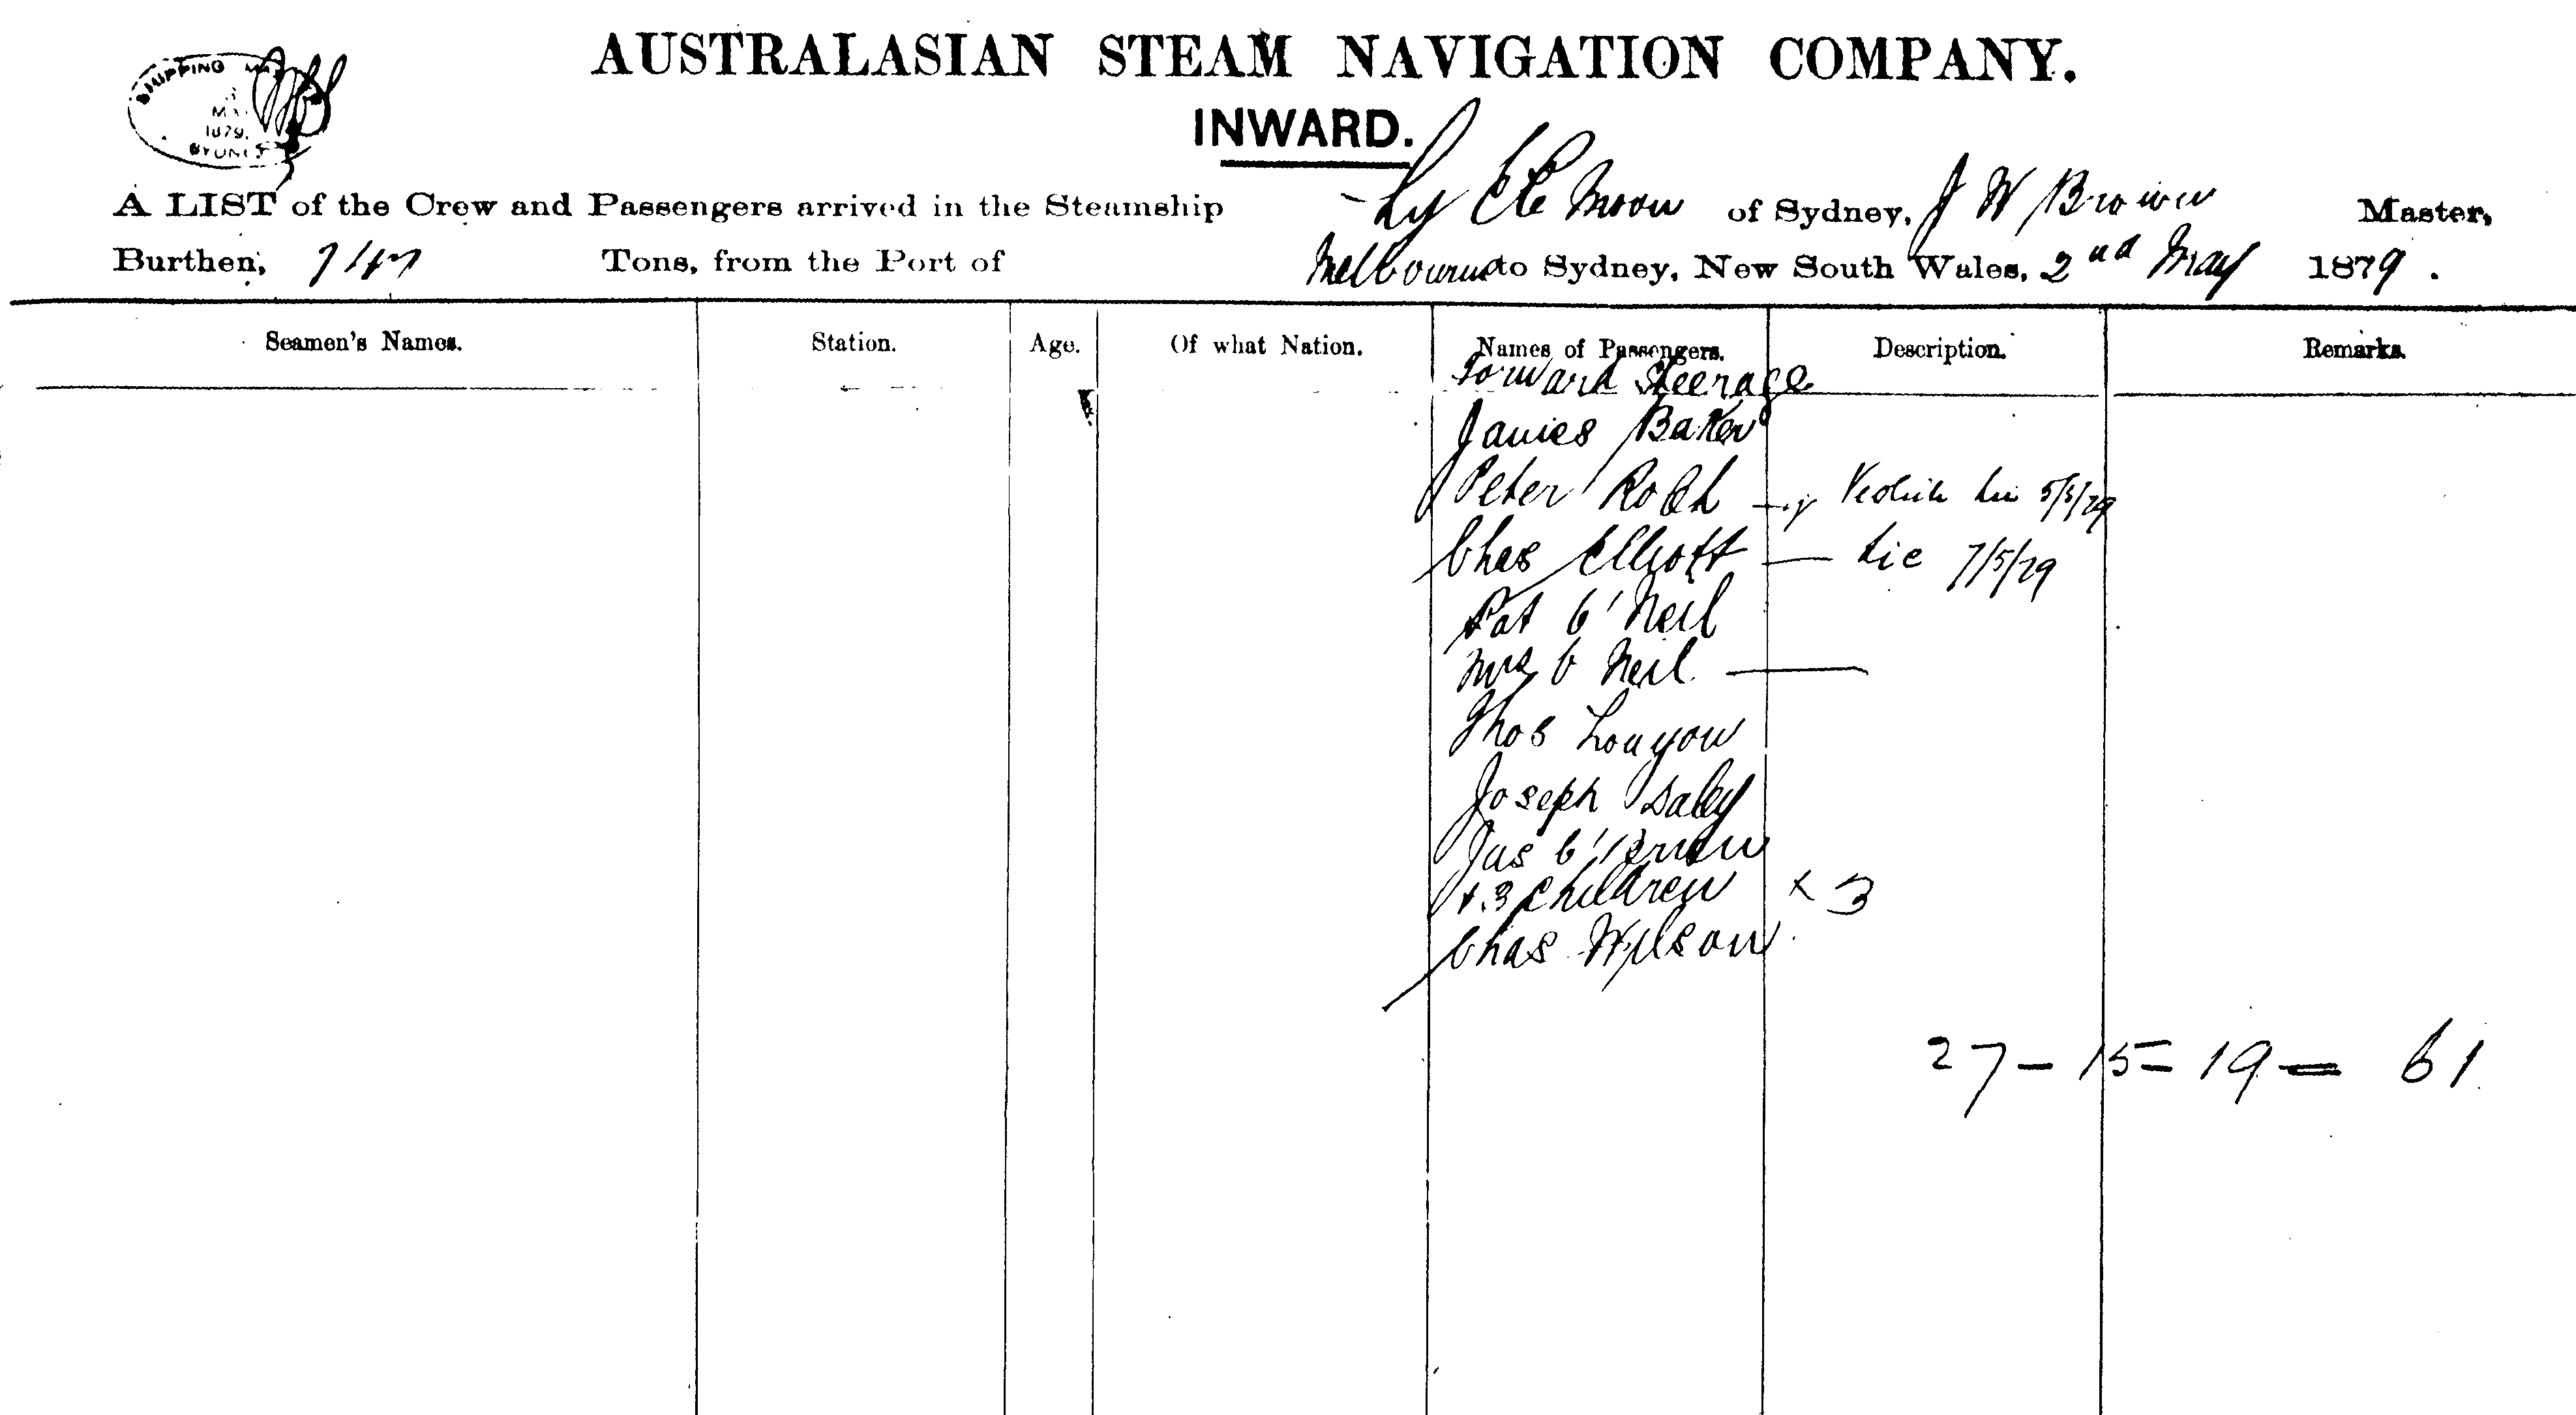 AUSTRALASIAN STEAM NAVIGATION COMPANY.
INWARD.
SHIPPING
1879.
SYDNEY
A LIST of the Crew and Passengers arrived in the Steamship Ly Ee Moon of Sydney, J W Brown Master,
Burthen, 747 Tons, from the Port of Melbourne to Sydney, New South Wales, 2nd May 1879.
Seamen's Names. Station. Age. Of what Nation. Names of Passengers. Description. Remarks.
Forward Steerage
James Baker
Peter 5/5/79
Chas Elliott — 7/5/79
Pat O'Neil
Mrs O Neil —
Thos
Joseph Daley
Jas O'Brien
+ 3 Children × 3
Chas Wilson
27 - 15 = 19 = 61